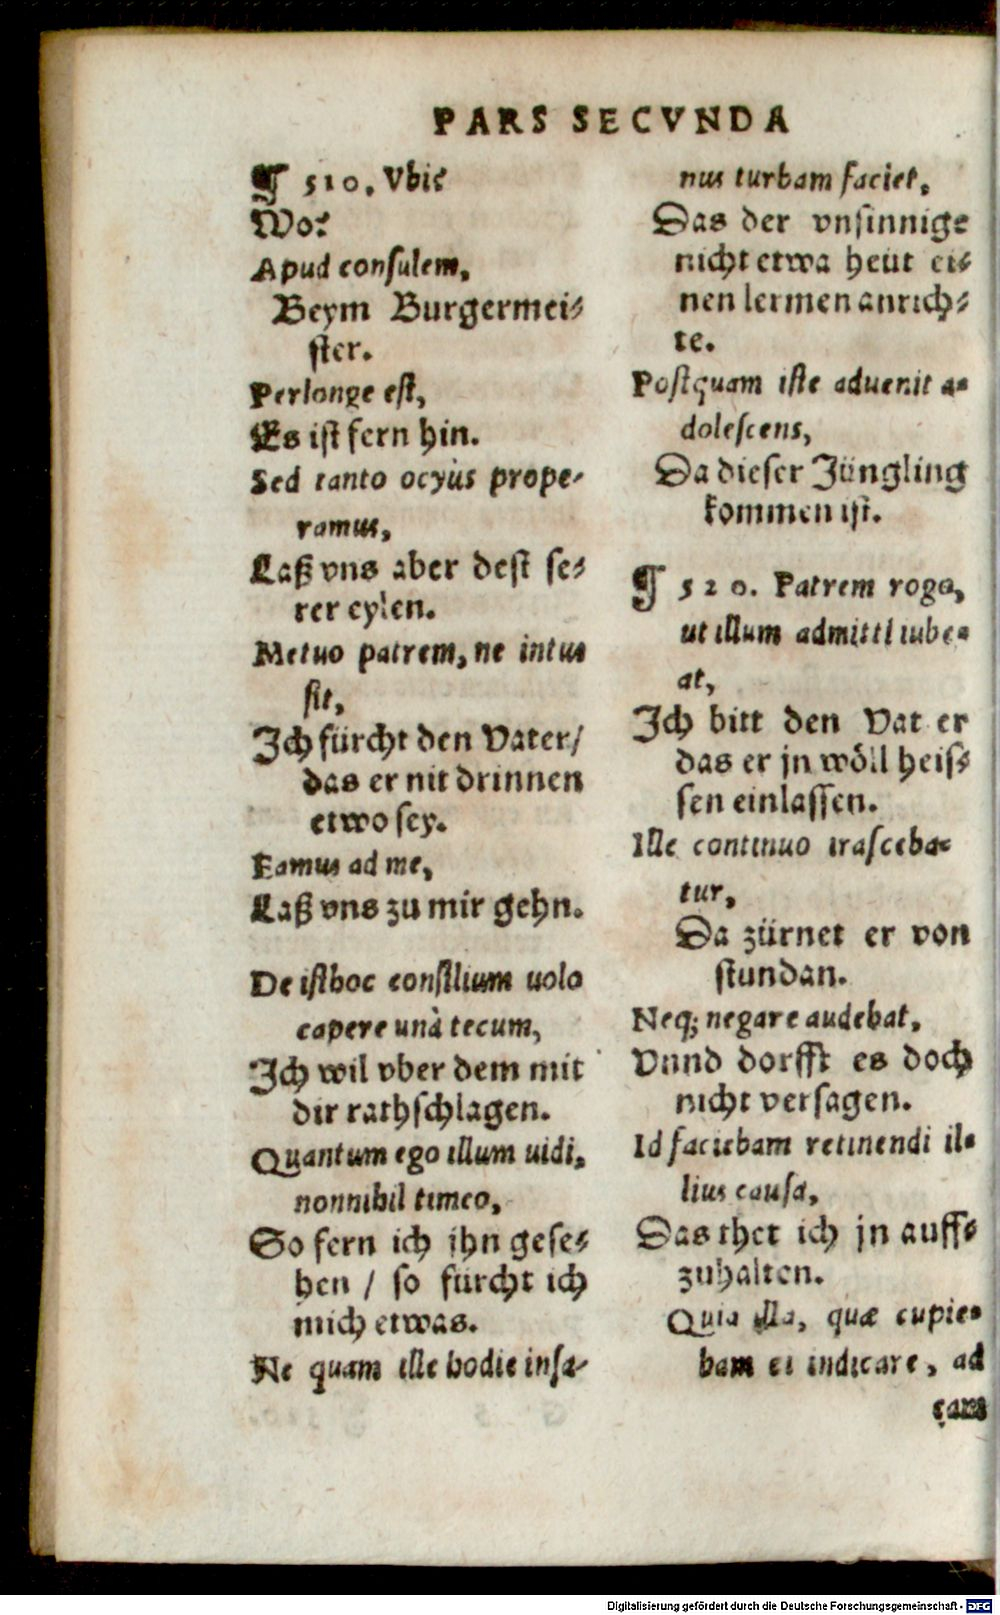 PARS SECVNDA
¶ 510. Vbi?
Wo?
Apud consulem,
Beym Burgermei⸗
ster.
Perlonge est,
Es ist fern hin.
Sed tanto ocyùs prope-
ramus,
Laß vns aber dest se⸗
rer eylen.
Metuo patrem, ne intus
sit,
Ich fürcht den Vater/
das er nit drinnen
etwo sey.
Eamus ad me,
Laß vns zu mir gehn.
De isthoc consilium uolo
capere unà tecum,
Ich wil vber dem mit
dir rathschlagen.
Quantum ego illum uidi,
nonnihil timeo,
So fern ich jhn gese⸗
hen / so fürcht ich
mich etwas.
Ne quam ille hodie insa-
nus turbam faciet,
Das der vnsinnige
nicht etwa heut ei⸗
nen lermen anrich⸗
te.
Postquam iste aduenit a-
dolescens,
Da dieser Jüngling
kommen ist.
¶ 520. Patrem rogo,
ut illum admitti iube-
at,
Ich bitt den Vat er
das er jn wöll heis⸗
sen einlassen.
Ille continuo irasceba-
tur,
Da zürnet er von
stundan.
Neq; negare audebat,
Vnnd dorfft es doch
nicht versagen.
Id faciebam retinendi il-
lius causa,
Das thet ich jn auff⸗
zuhalten.
Quia illa, quæ cupie-
bam ei indicare, ad
Digitalisierung gefördert durch die Deutsche Forschungsgemeinschaft - DFG